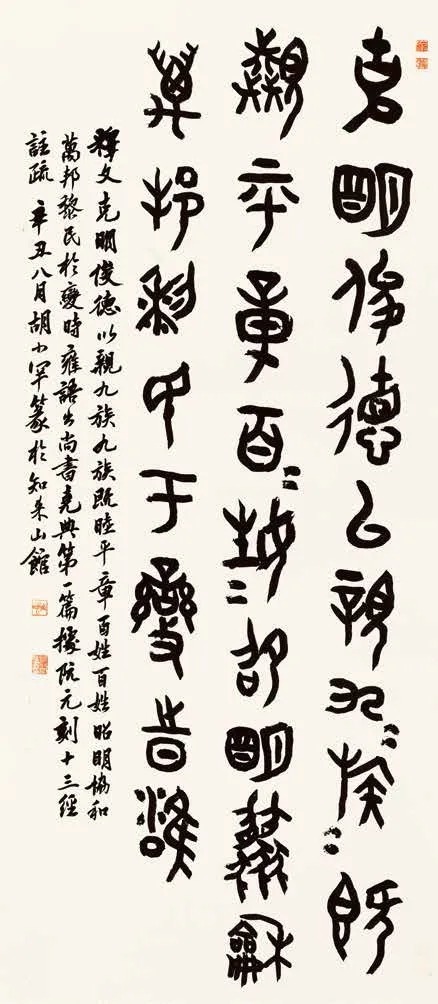 克明俊德以親九=族=既
睦平章百=姓=卲明協龢
萬邦黎民于變時雍
釋文 克明俊德以親九族九族既睦平章百姓百姓昭明協和
萬邦黎民於變時雍語出尚書堯典第一篇據阮元刻十三經
註疏 辛丑八月胡小罕篆於知山館